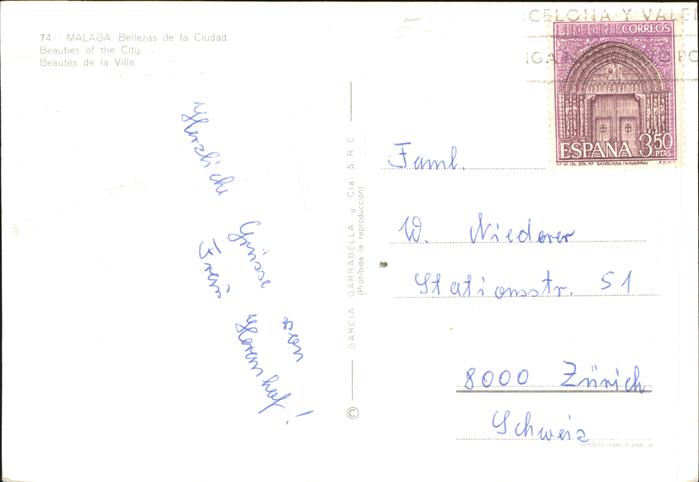 74 - MALAGA. Bellezas de la Ciudad.
Beauties of the City.
Beautés de la Ville.
Herzliche Grüsse von
Frau
CELONA Y VALEN
CORREOS
ESPAÑA 3,50
PTAS
Faml.
W. Niederer
Stationsstr. 51
8000 Zürich
Schweiz
© GARCIA GARRABELLA y Cía. S.R.C.
(Prohibida la reproducción)